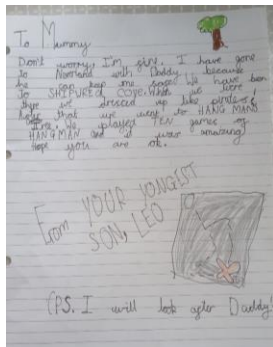 To Mummy
Don't worry, I'm fine. I have gone
to with Daddy because
he can keep me safe. We have been
to SHIPURED COVE. When we were
there we dressed up like pirates!
that we went to HANG MANS
We played TEN games of
HANGMAN and it was amazing!
Hope you are ok.
From YOUR YONGEST
SON, LEO
(PS. I will look after Daddy!